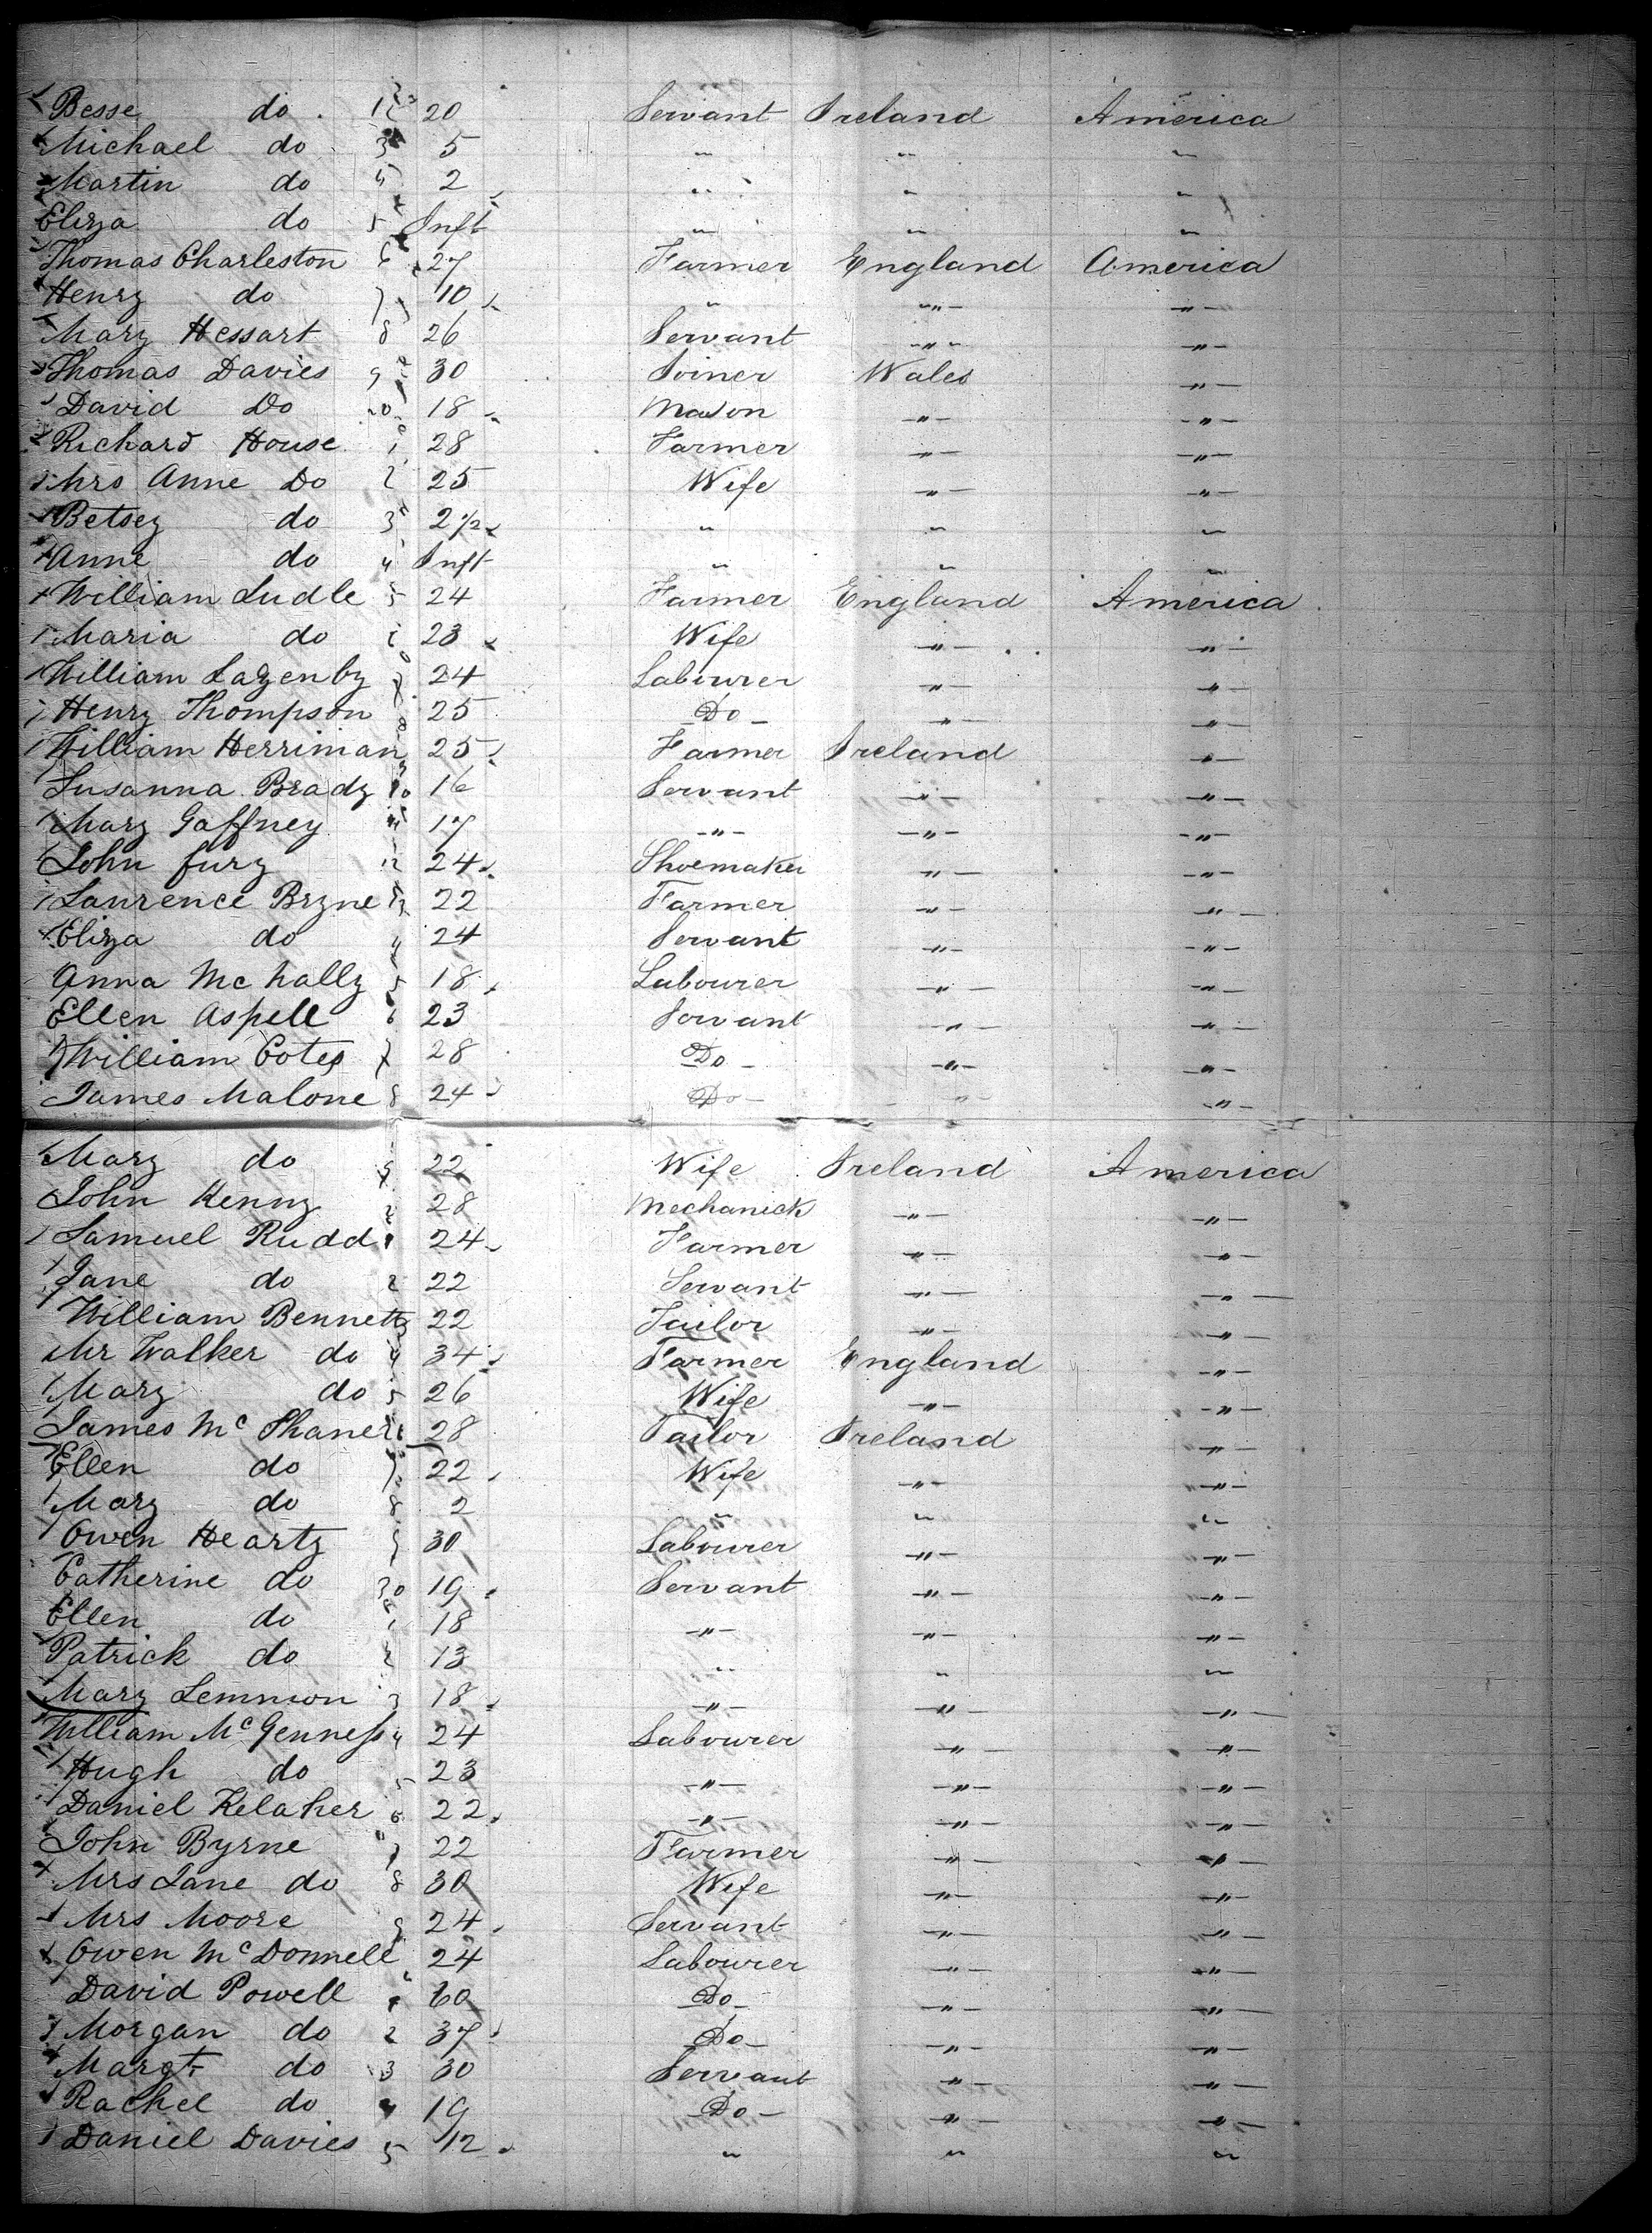 Besse do 20 Servant Ireland America
Michael do 3 5 " " "
Martin do 4 2 " " "
Eliza do 5 Inft " " "
Thomas Charleston 6 27 Farmer England America
Henry do 7 10 " " "
Mary Hessart 8 26 Servant " "
Thomas Davies 9 30 Joiner Wales "
David Do 18 Mason " "
Richard House 1 28 Farmer " "
Mrs Anne Do 2 25 Wife " "
Betsey do 3 2 1/2 " " "
Anne do 4 Inft " " "
William Ludle 5 24 Farmer England America
Maria do 23 Wife " "
William Lazenby 7 24 Labourer " "
Henry Thompson 8 25 Do " "
William Herriman 9 25 Farmer Ireland "
Susanna Brady 10 16 Servant " "
Mary Gaffney 17 " " "
John fury 24 Shoemaker " "
Laurence Bryne 22 Farmer " "
Eliza do 4 24 Servant " "
Anna Mc Nally 5 18 Labourer " "
Ellen Aspell 6 23 Servant " "
William Cotes 7 28 Do " "
James Malone 8 24 Do " "
Mary do 9 22 Wife Ireland America
John Kenny 28 Mechanick " "
Samuel Rudd 1 24 Farmer " "
Jane do 2 22 Servant " "
William Bennett 3 22 Tailor " "
Mr Walker do 4 34 Farmer England "
Mary do 5 26 Wife " "
James Mc Shane 28 Tailor Ireland "
Ellen do 7 22 Wife " "
Mary do 8 2 " " "
Owen Hearty 9 30 Labourer " "
Catherine do 30 19 Servant " "
Ellen do 1 18 " " "
Patrick do 2 13 " " "
Mary Lemmon 3 18 " " "
William Mc Genness 4 24 Labourer " "
Hugh do 5 23 " " "
Daniel Kelaher 6 22 " " "
John Byrne 7 22 Farmer " "
Mrs Jane do 8 30 Wife " "
Mrs Moore 9 24 Servant " "
Owen Mc Donnell 24 Labourer " "
David Powell 1 60 Do " "
Morgan do 2 37 Do " "
Margt do 3 30 Servant " "
Rachel do 4 19 Do " "
Daniel Davies 5 12 " " "